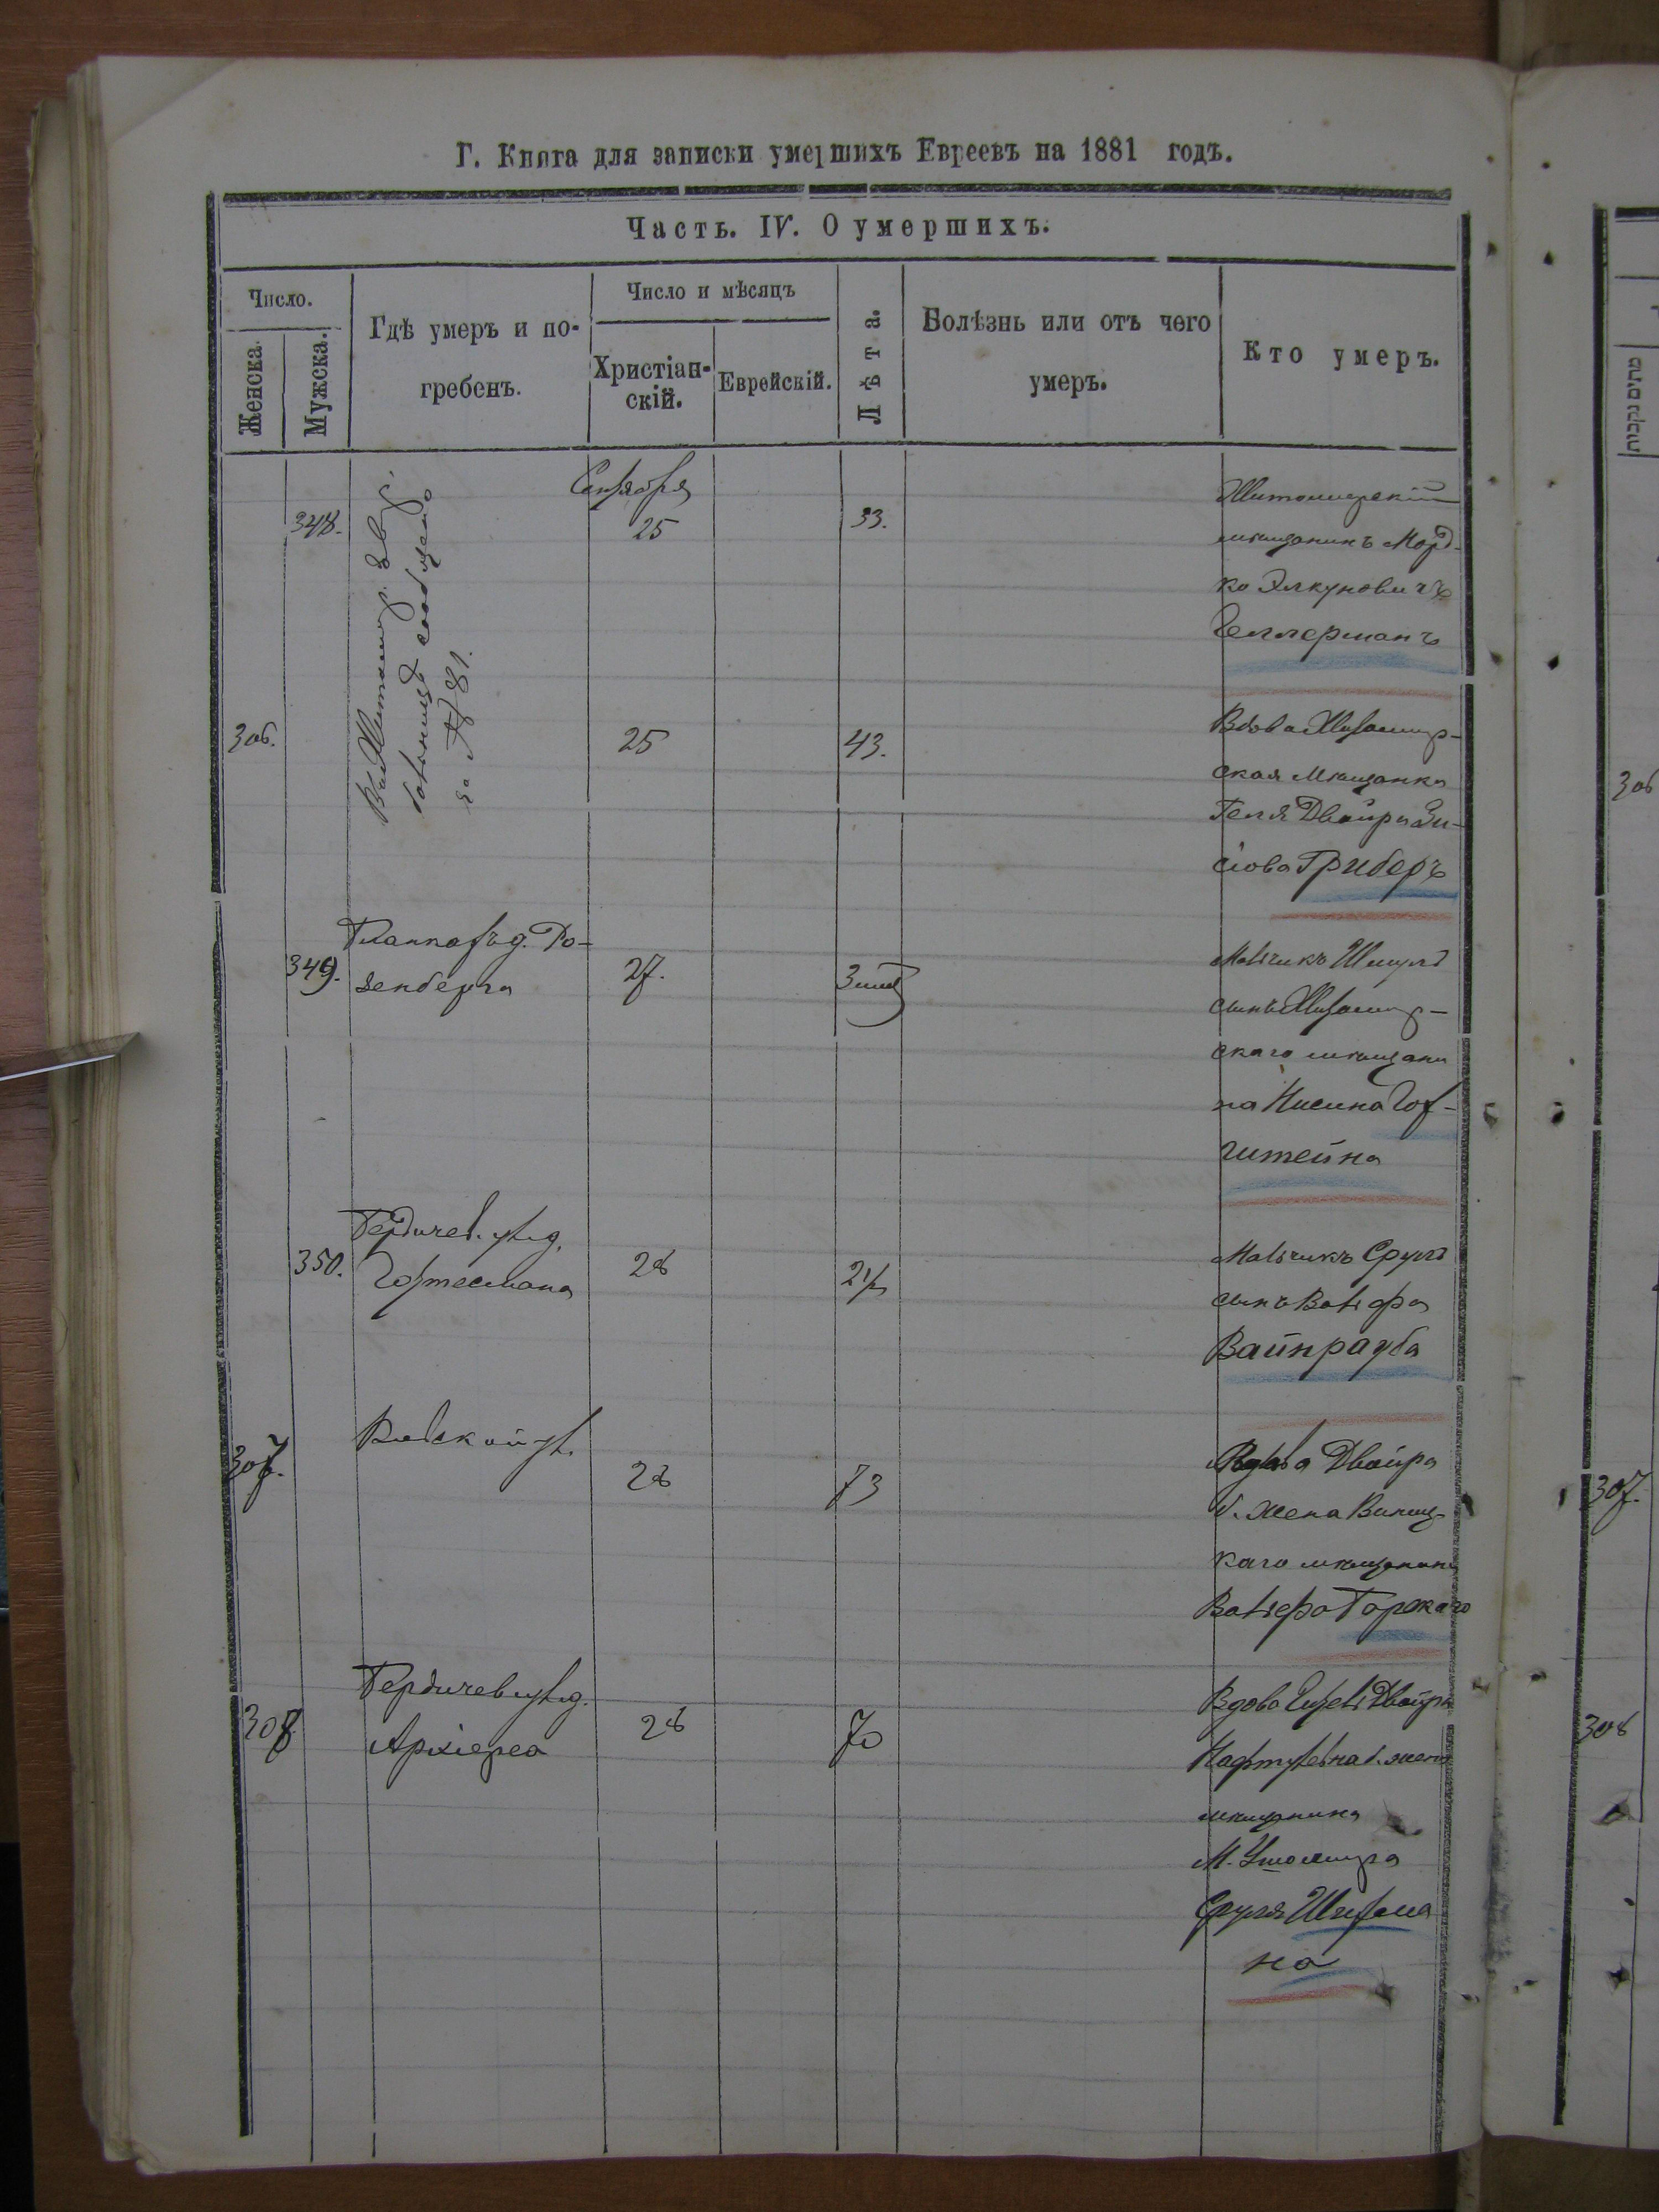 Г. Книга для записки умершихъ Евреевъ на 1881 годъ.
Часть. IV. О умершихъ.
Число.
Женска.
Мужска.
Гдѣ умеръ и по-
гребенъ.
Число и мѣсяцъ
Христіан-
скій.
Еврейскій.
Лѣта.
Болѣзнь или отъ чего
умеръ.
Кто умеръ.
מתים נקבות
Сентября
348.
25
33.
Житомирскій
мѣщанинъ Морд-
ко Элкуновичъ
Геллерманъ
306.
25
43.
Вдова Житомир-
ская мѣщанка
Геля Двойра Зи-
сіова Гриберъ
306
349.
д. Ро-
зенберга
27.
3
Мальчикъ Шмулъ
сынъ Житомир-
скаго мѣщани
на Нисина Гоф-
штейна
350.
Бердичев. ул. д.
28
2
Мальчикъ Срулъ
сынъ Вольфа
Вайнрауба
307.
28
73
Вдова Двойра
б. жена
каго мѣщанина
Вольфа Горскаго
307.
308
Бердичев ул. д.
Архіерея
28
70
Вдова Двойра
Нафтулевна б. жена
мѣщанина
М. Ушомира
Сруля Шифма
на
308